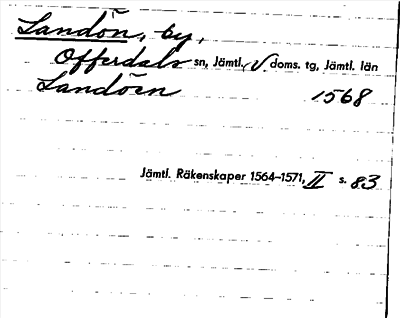 Landön, by,
Offerdals sn, Jämtl., V. doms. tg, Jämtl. län
Landöen 1568
Jämtl. Räkenskaper 1564-1571, II s. 83